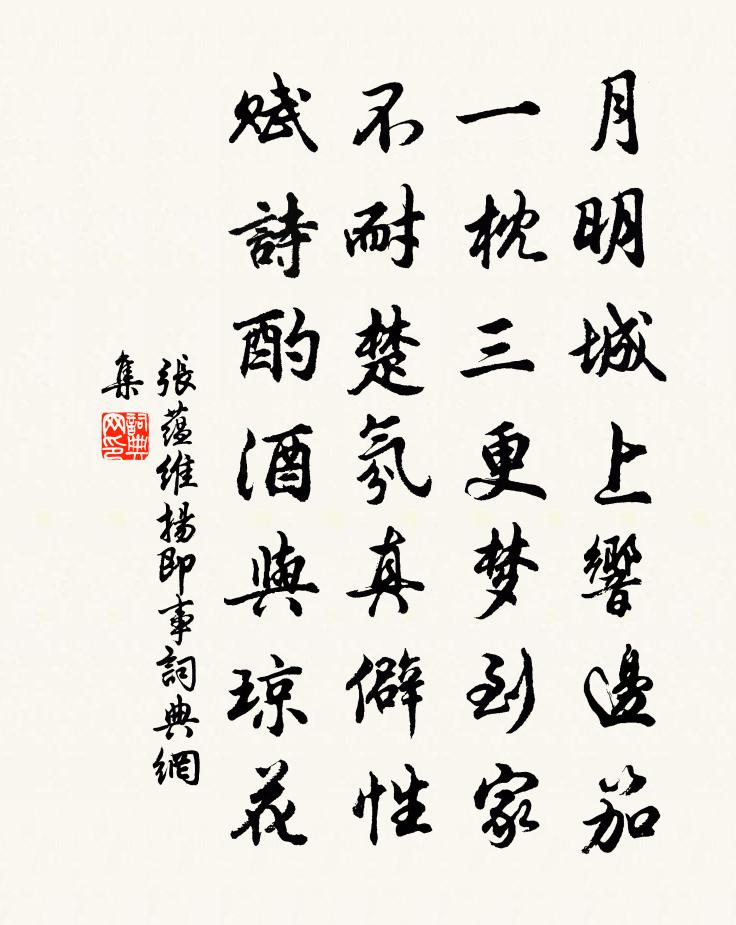 月明城上響邊笳
一枕三更梦到家
不耐楚氛真僻性
賦詩酌酒與琼花
張蘊維揚即事詞典網
集
詞典网印